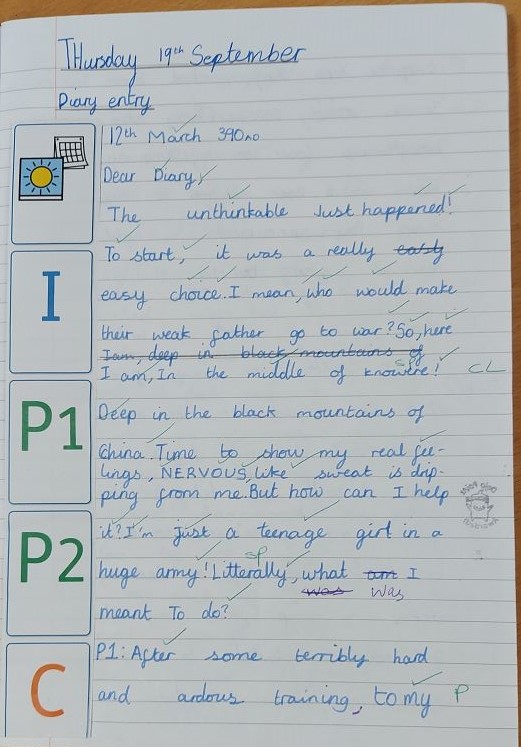 THursday 19th September
Diary entry
12th March 390AD
Dear Diary,
The unthinkable Just happened!
To start, it was a really easly
easy choice. I mean, who would make
their weak father go to war? So, here
I am, deep in black mountains of
I am, In the middle of knowere! sp CL
Deep in the black mountains of
China. Time to show my real fee-
lings, NERVOUS, like sweat is drip-
ping from me. But how can I help
it? I'm just a teenage girl in a
sp
huge army! Litterally, what am I
was was
meant To do?
P1: After some terribly hard
and ardous training, to my P
I
P1
P2
C